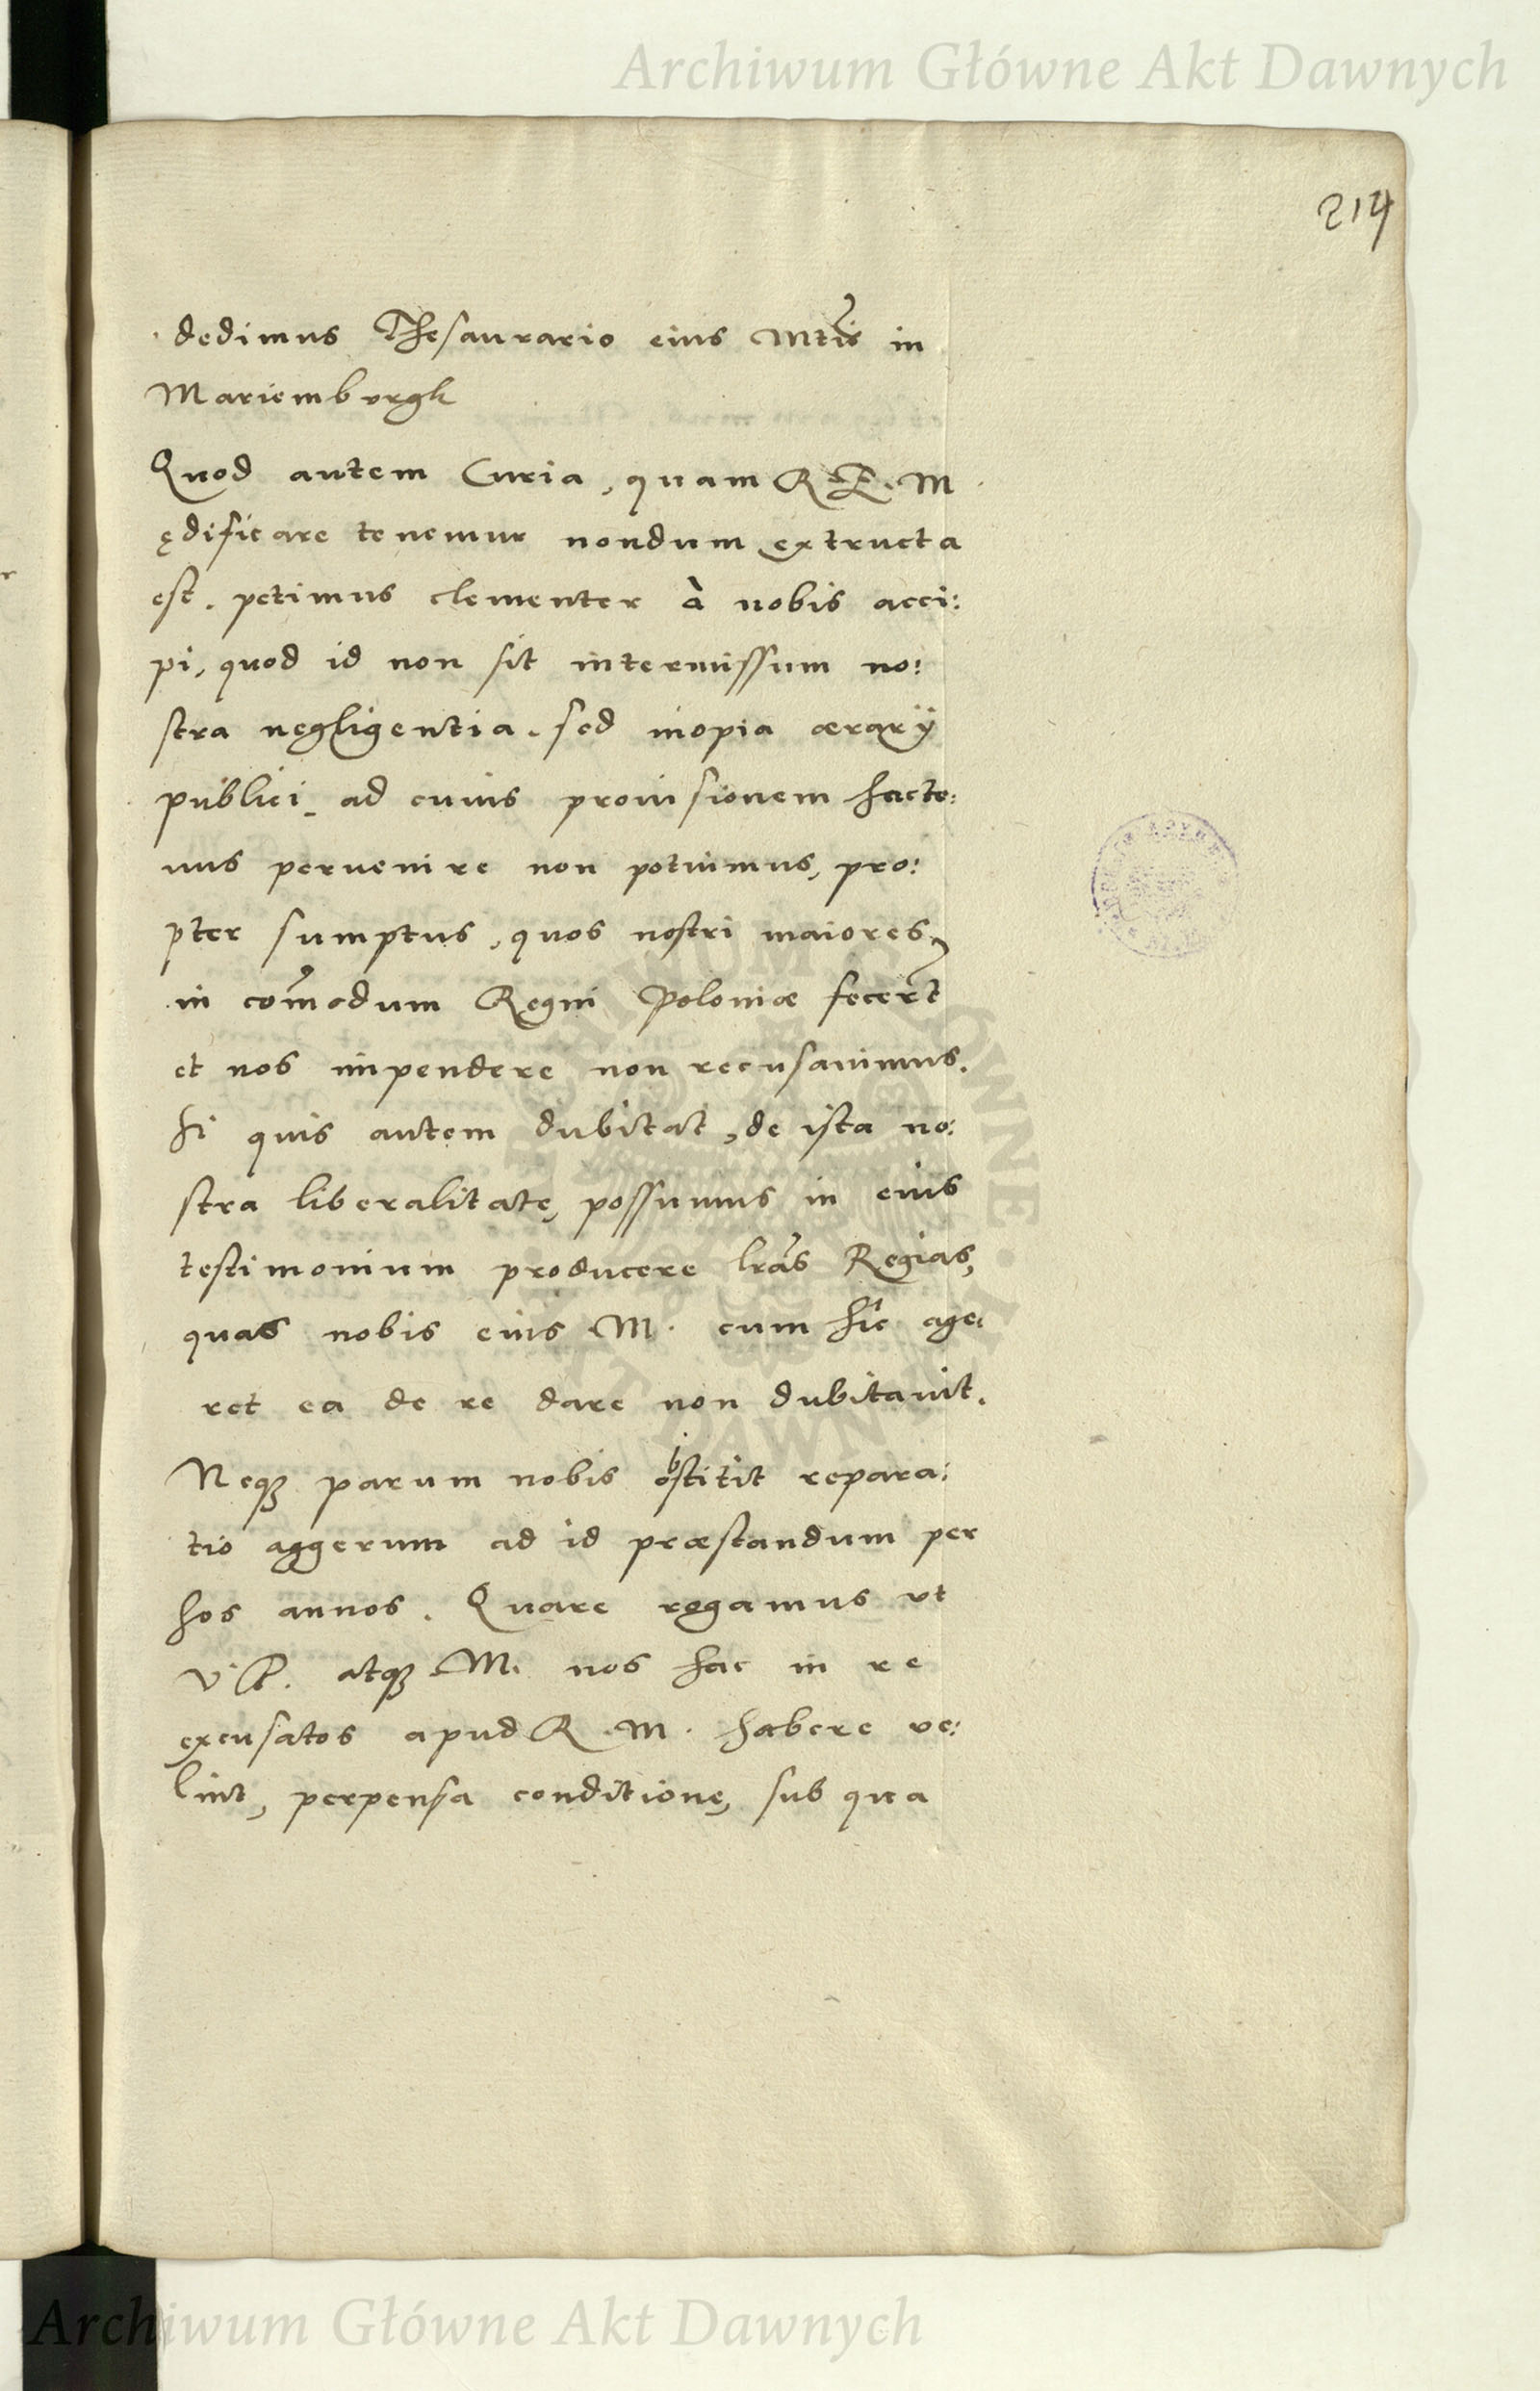 Archiwum Główne Akt Dawnych
214
dedimus Thesaurario eius Mtis in
Mariemburgk
Quod autem Curia, quam R. E. M
ędificare tenemur nondum extructa
est. petimus clementer à nobis acci:
pi, quod id non sit intermissum no:
stra negligentia. sed inopia ærarÿ
publici, ad cuius prouisionem hacte:
nus peruenire non potuimus, pro:
pter sumptus, quos nostri maiores,
in com̃odum Regni Poloniæ fecert̃
et nos impendere non recusauimus.
Si quis autem dubitat, de ista no:
stra liberalitate, possumus in eius
testimonium producere lrãs Regias,
quas nobis eius M. cum hîc age:
ret ea de re dare non dubitauit.
Neqꝫ parum nobis obstitit repara:
tio aggerum ad id præstandum per
hos annos. Quare rogamus vt
V. P. atqꝫ M. nos hac in re
excusatos apud R. M. habere ve:
lint, perpensa conditione, sub qua
Archiwum Główne Akt Dawnych